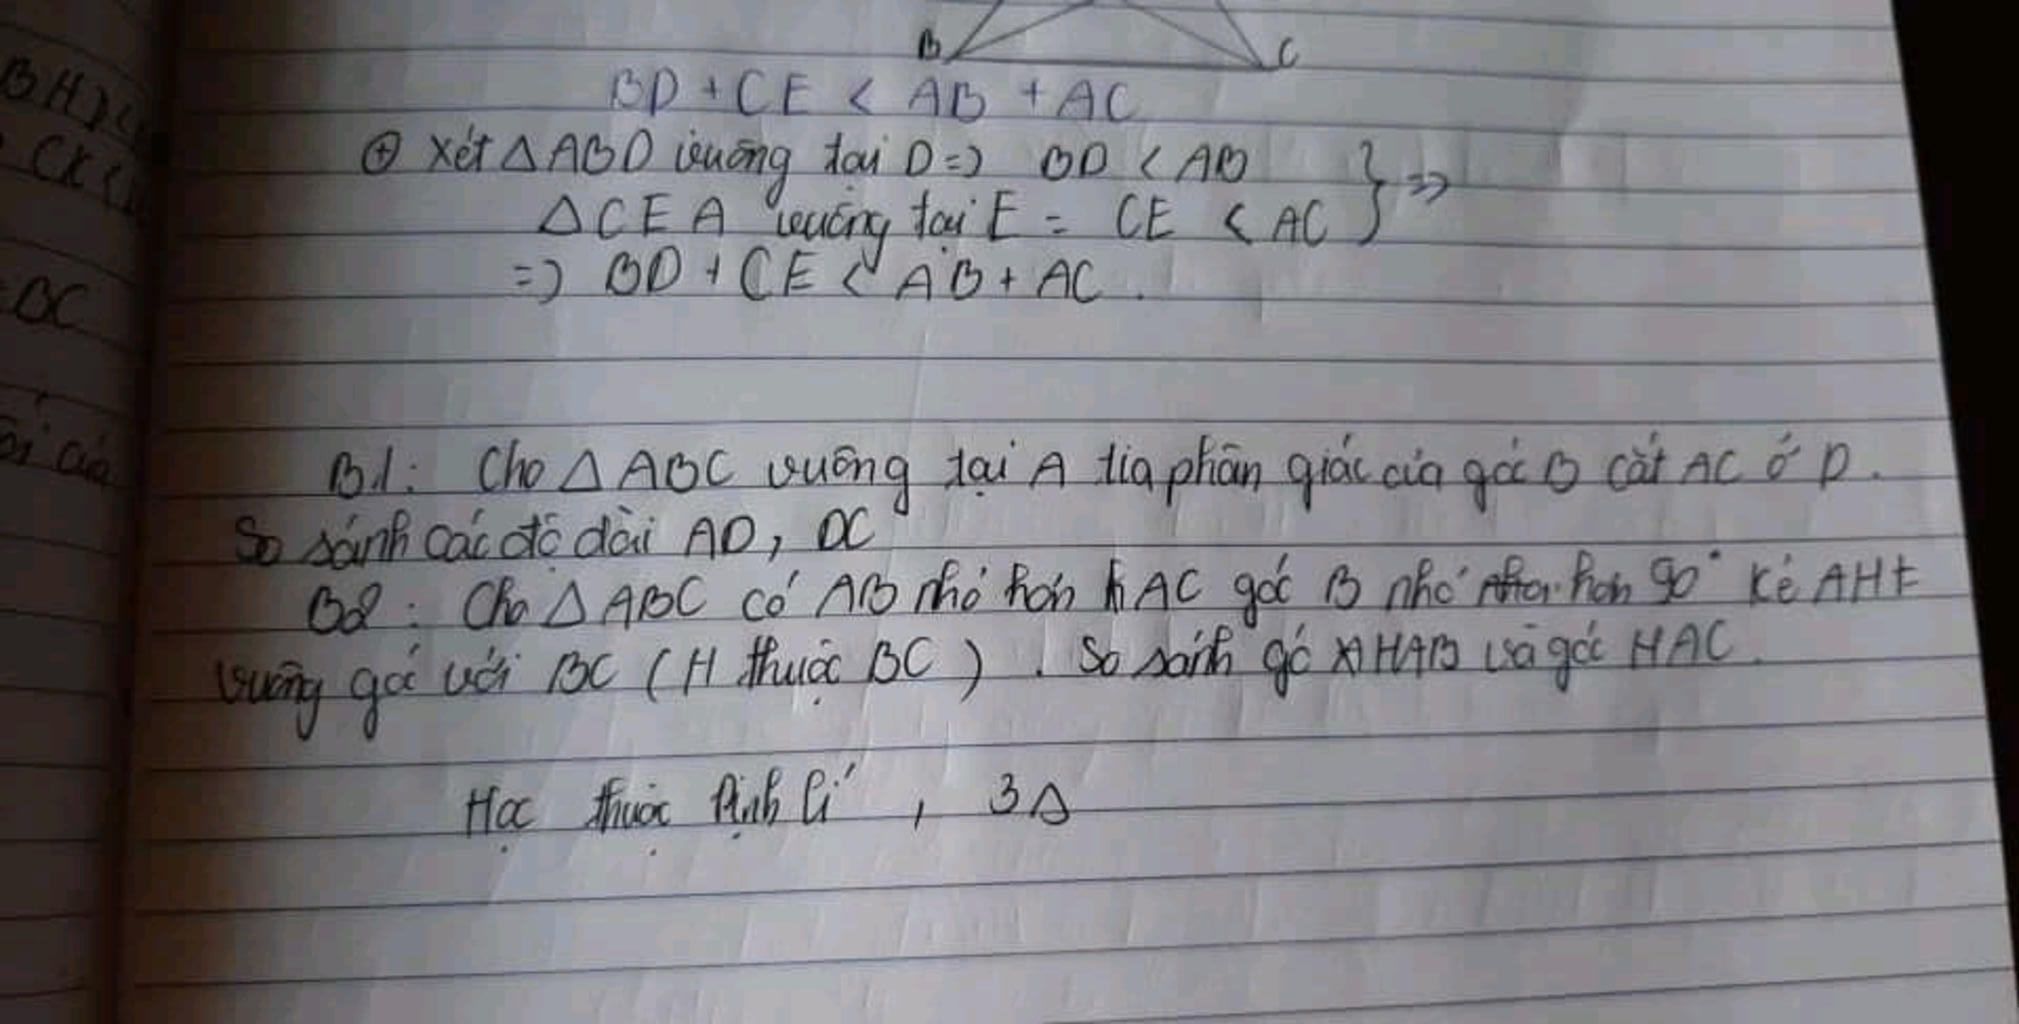 B C
BD + CE < AB + AC
⊕ Xét △ABD vuông tại D => BD < AB } =>
△CEA vuông tại E = CE < AC
=> BD + CE < AB + AC.
B1: Cho △ABC vuông tại A tia phân giác của góc B cắt AC ở D.
So sánh các độ dài AD, DC
B2: Cho △ABC có AB nhỏ hơn AC góc B nhỏ hơn 90° Kẻ AH
vuông góc với BC (H thuộc BC). So sánh gó HAB và góc HAC.
Học thuộc định lí, 3△
BH <
CK <
DC
của